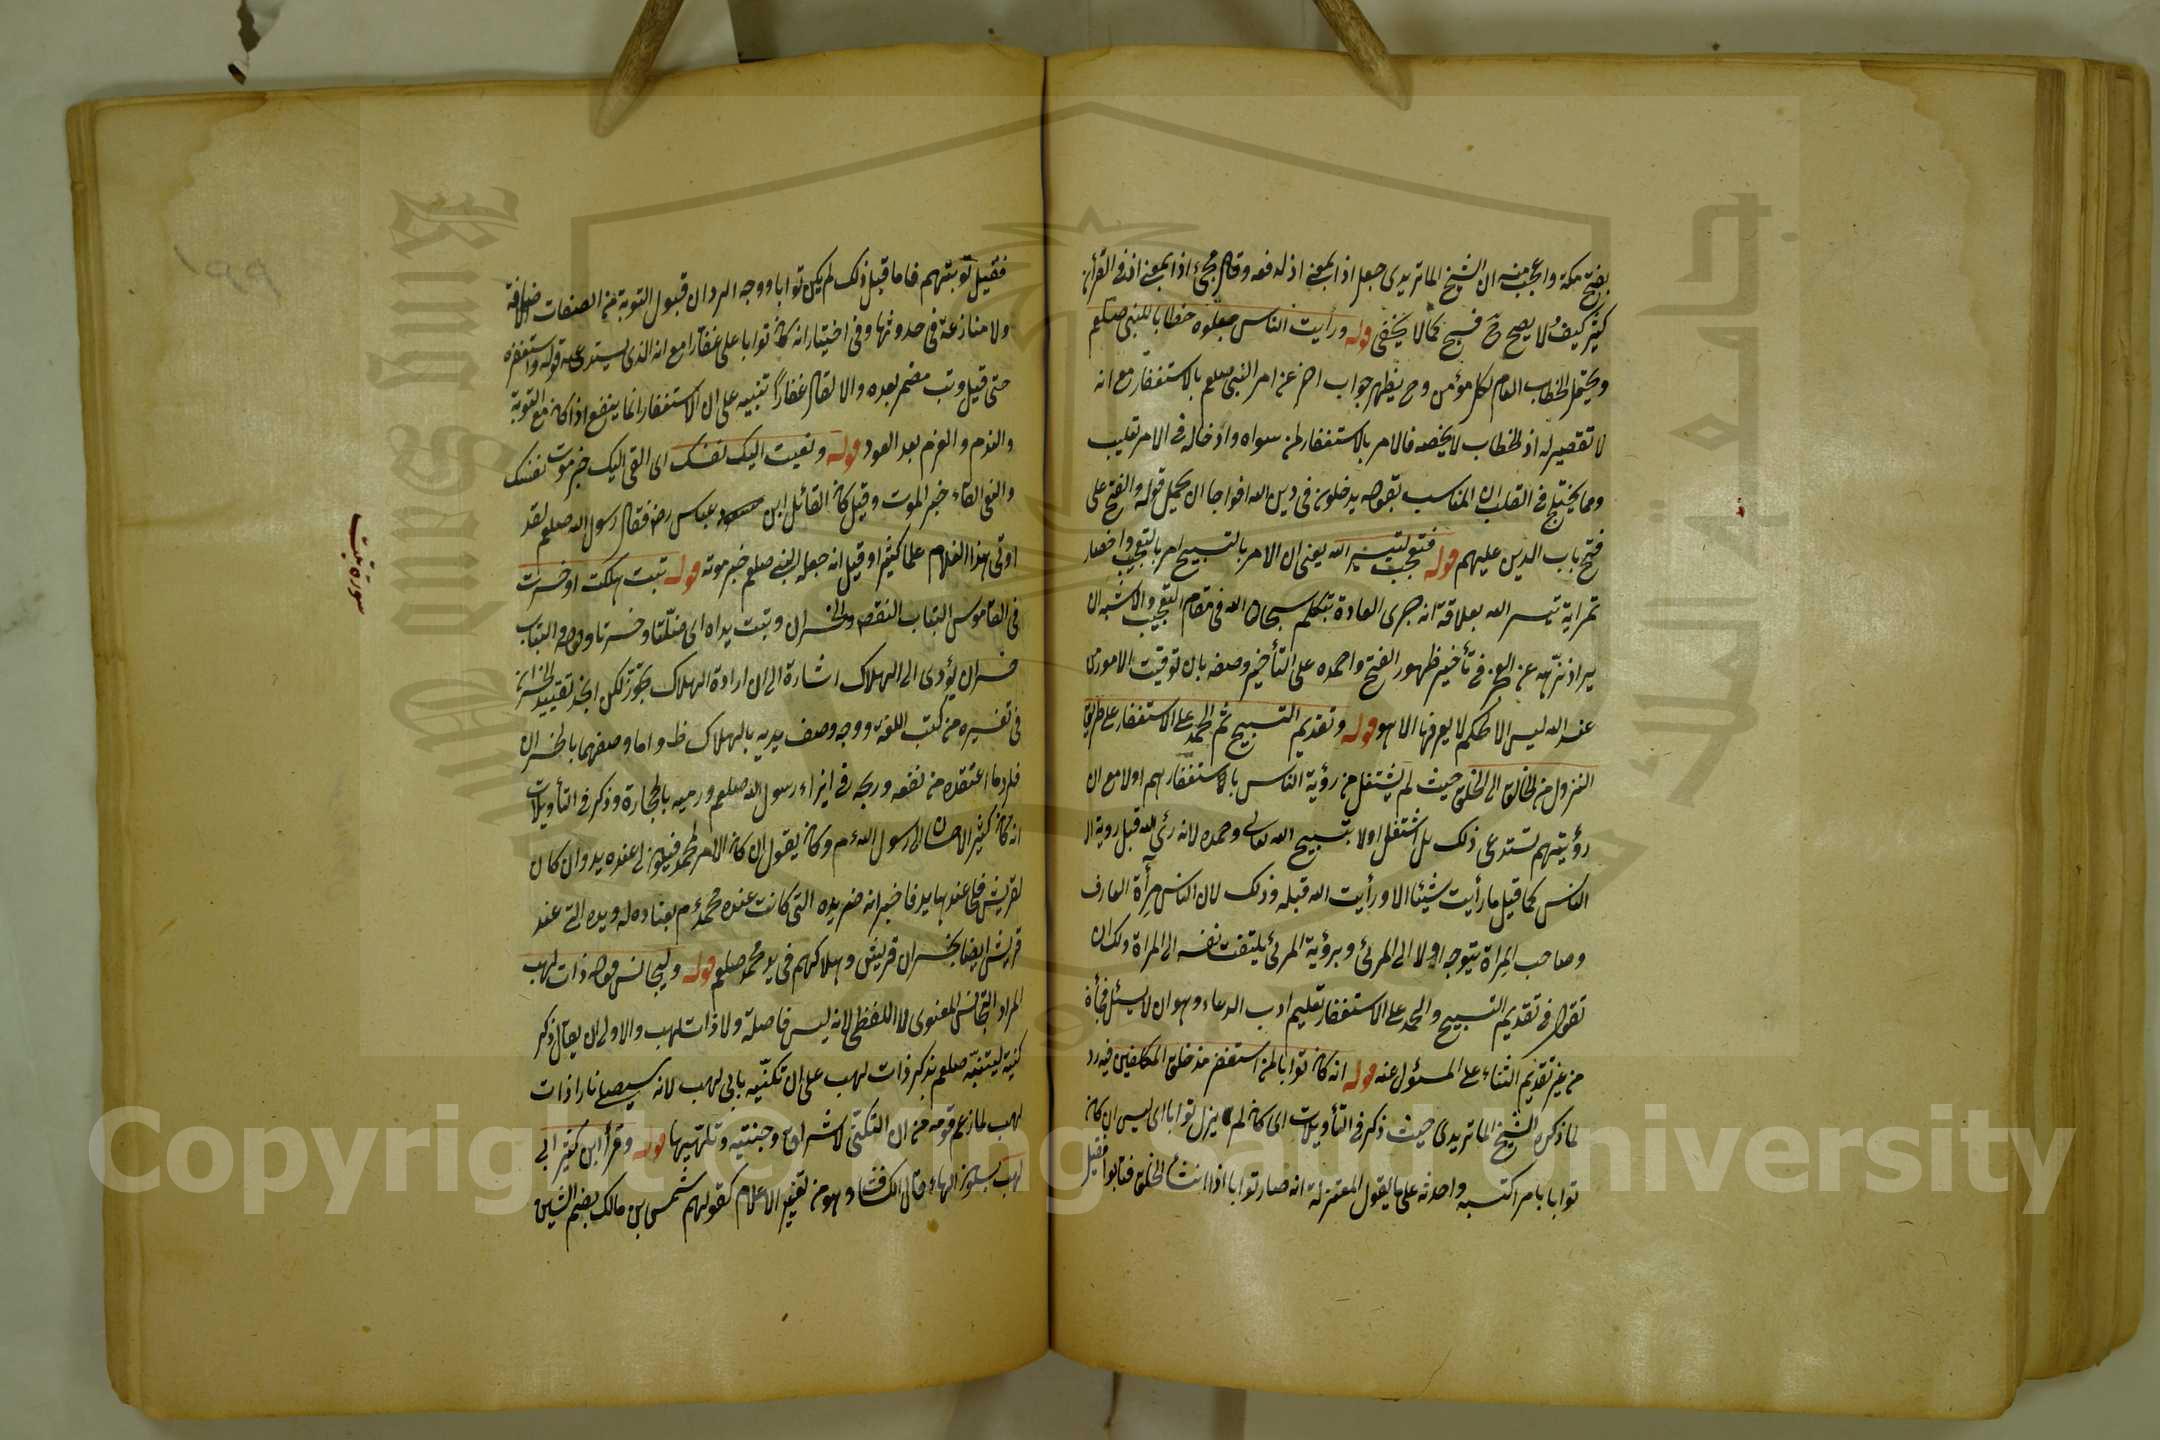 بفتح مكة واعجب منه ان الشيخ الماتريدى جعل اذا بمعنى اذ له فعه وقال مجئ اذا بمعنى اذ فى القرأن
كثير كيف ولا يصح فسبح كما لا يخفى قوله ورأيت الناس خطابا للنبى صلعم
ويحتمل الخطاب العام لكل مؤمن وح يظهر جواب اخر عن امر النبى صلعم بالاستغفار مع انه
لا تقصير له اذ الخطاب لا يخصه فالامر بالاستغفار لمن سواه وادخاله فى الامر تغليب
ومما يختلج فى القلب ان المناسب بقوله يدخلون فى دين الله افواجا ان يحمل قوله والفتح على
فتح باب الدين عليهم قوله فتعجب لتيسير الله يعنى ان الامر بالتسبيح امر بالتعجب
تيسر الله بعلاقة انه جرى العادة بتكلم سبحان الله فى مقام التعجب والاشبه ان
يراد نزهه عن العجز فى تأخير ظهور الفتح واحمده على التأخير وصفه بان توقيت الامور من
عند الله ليس الا لحكم لا يعرفها الا هو قوله وتقديم التسبيح ثم الحمد على الاستغفار على طريق
النزول من الخالق الى الخلق حيث لم يشتغل من رؤية الناس بالاستغفار لهم اولا مع ان
رؤيتهم تستدعى ذلك بل اشتغل اولا بتسبيح الله تعالى وحمده لانه رأى الله قبل روية ال
الناس كما قيل ما رأيت شيئا الا ورأيت الله قبله وذلك لان الناس مرأة العارف
وصاحب المرأة يتوجه اولا الى المرئى وبرؤية المرئى يلتفت نفسه الى المراة ولك ان
تقول فى تقديم التسبيح والحمد على الاستغفار تعليم ادب الدعاء وهو ان لا يسئل فجأة
من غير تقديم الثناء على المسئول عنه قوله انه كان توابا لمن استغفر منذ خلق المكلفين فيه رد
لما ذكره الشيخ الماتريدى حيث ذكر فى التأويلات اى كان لم يزل توابا اى ليس ان كان
توابا بامر اكتسبه واحدثه على ما يقول المعتزلة انه صار توابا اذا انشأ الخلق فتابوا فقبل
فقبل توبتهم فاما قبل ذلك لم يكن توابا ووجه الرد ان قبول التوبة من الصفات الاضافة
ولا منازعة فى حدوثها وفى اختيار انه كان توابا على غفارا مع انه الذى يستدعيه قوله واستغفره
حتى قيل وتب مضمر بعده والا لقال غفارا تنبيه على ان الاستغفار انما ينفع اذا كان مع التوبة
والندم والعزم بعد العود قوله ونعيت اليك نفسك اى القى اليك خبر موت نفسك
والنعى القاء خبر الموت وقيل كان القائل ابن عباس رضه فقال رسول الله صلعم لقد
اوتى هذا الغلام علما كثيرا وقيل انه جعله النبى صلعم خبر موته قوله تبت هلكت او خسرت
فى القاموس التباب النقص والخسران وتبت يداه اى ضلتا وخسرتا وقوله والتباب
خسران يؤدى الى الهلاك اشارة الى ان ارادة الهلاك تجوز لكن لم نجد تقييد الخسران
فى تفسيره من كتب اللغة ووجه وصف يديه بالهلاك ظ واما وصفهما بالخسران
فلرد ما اعتقده من نفعه وربحه فى ايذاء رسول الله صلعم ورميه بالحجارة وذكر فى التأويلات
انه كان كثير الاحسان الى رسول الله م وكان يقول ان كان الامر لمحمد فيكون لى عنده يد وان كان
لقريش فلى عندها يد فاخبر انه خسر يده التى كانت عنده محمد م بعناده له ويده التى عند
قريش ايضا بخسران قريش وهلاكهم فى يد محمد صلعم قوله وليجانس قوله ذات لهب
المراد التجانس المعنوى لا اللفظى لانه ليس فاصلة ولا ذات لهب والاولى ان يقال ذكر
كنيته ليتنبه صلعم بذكر ذات لهب على ان تكنيه بابى لهب لانه سيصلى نارا ذات
لهب لما زعم قومه من ان التكنى لاشراق وجنتيه وتلتهبها قوله وقرأ ابن كثير ابى
لهب بسكون الهاء قال الكشاف وهو من تغيير الاعلام كقولهم شمس بن مالك بضم الشين
سورة تبت
١٩٩
Copyright © King Saud University
King Saud University
جامعة الملك سعود